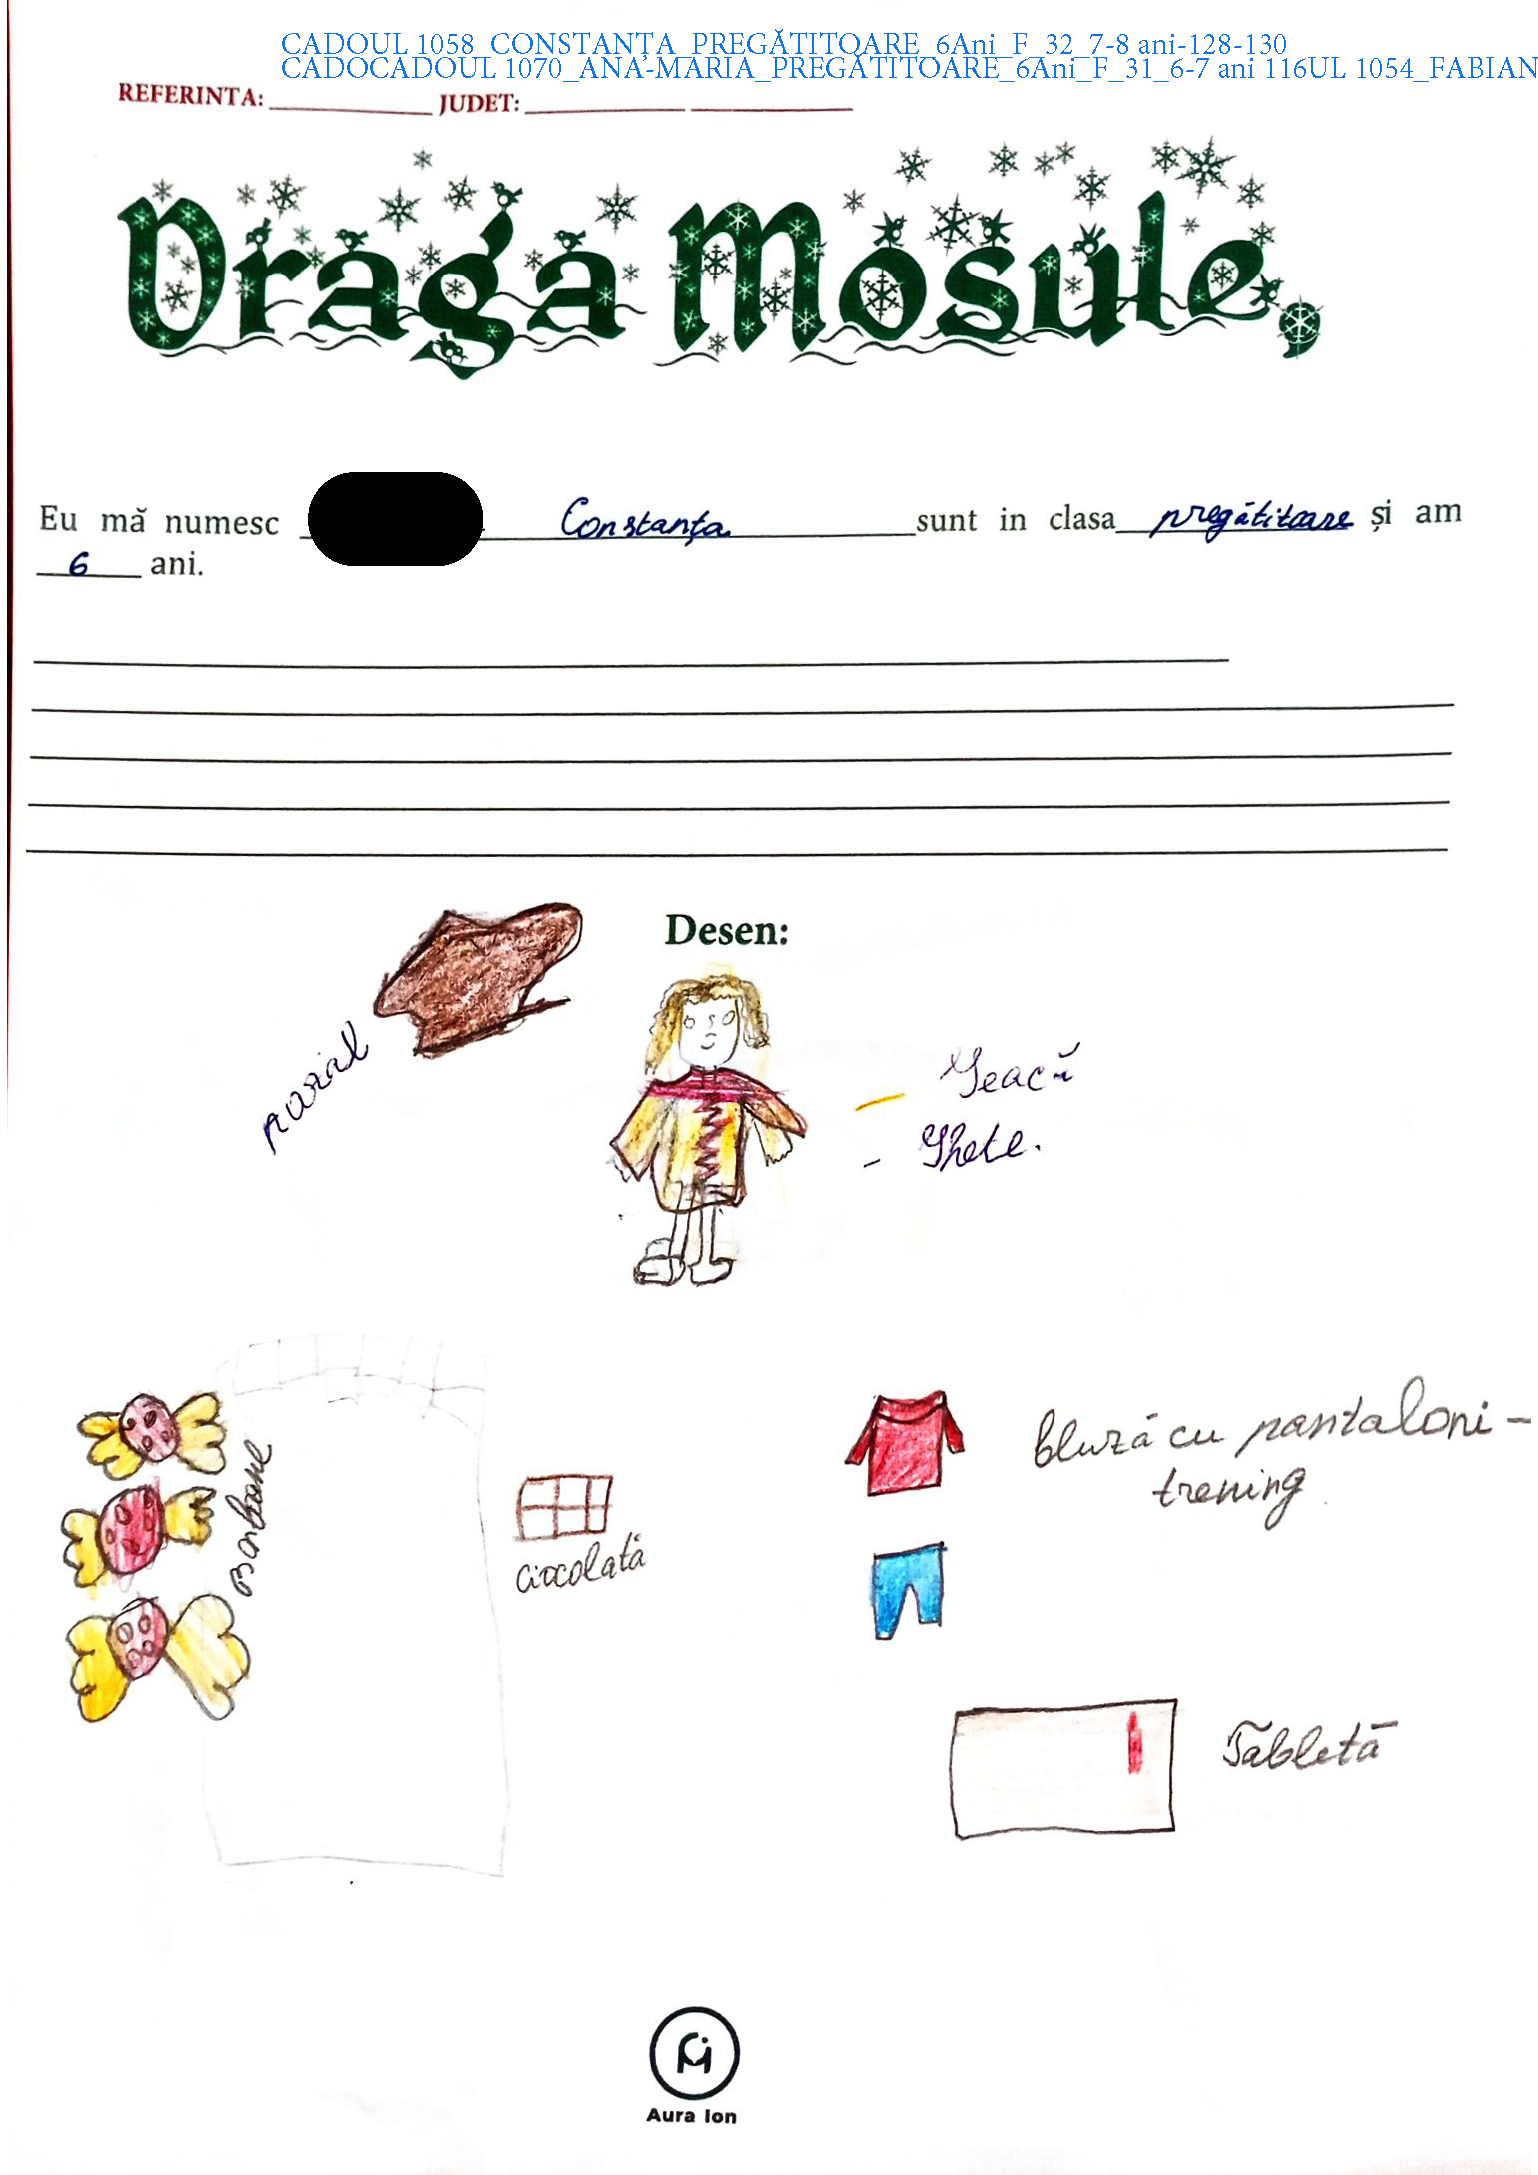 CADOUL 1058_CONSTANŢA_PREGĂTITOARE_6Ani_F_32_7-8 ani-128-130
CADOCADOUL 1070_ANA-MARIA_PREGĂTITOARE_6Ani_F_31_6-7 ani 116UL 1054_FABIAN
REFERINTA: JUDET:
Draga Mosule,
Eu mă numesc Constanța sunt in clasa pregătitoare și am
6 ani.
Desen:
- Geacă
- Ghete.
Bomboane
ciocolată
bluză cu pantaloni -
trening
Tabletă
Aura Ion